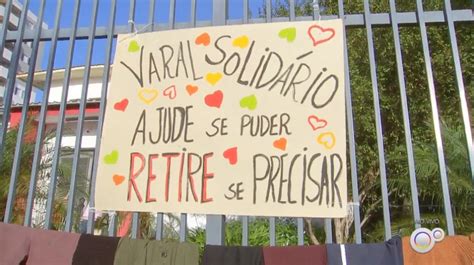 VARAL SOLIDÁRIO
AJUDE SE PUDER
RETIRE SE PRECISAR
AO VIVO